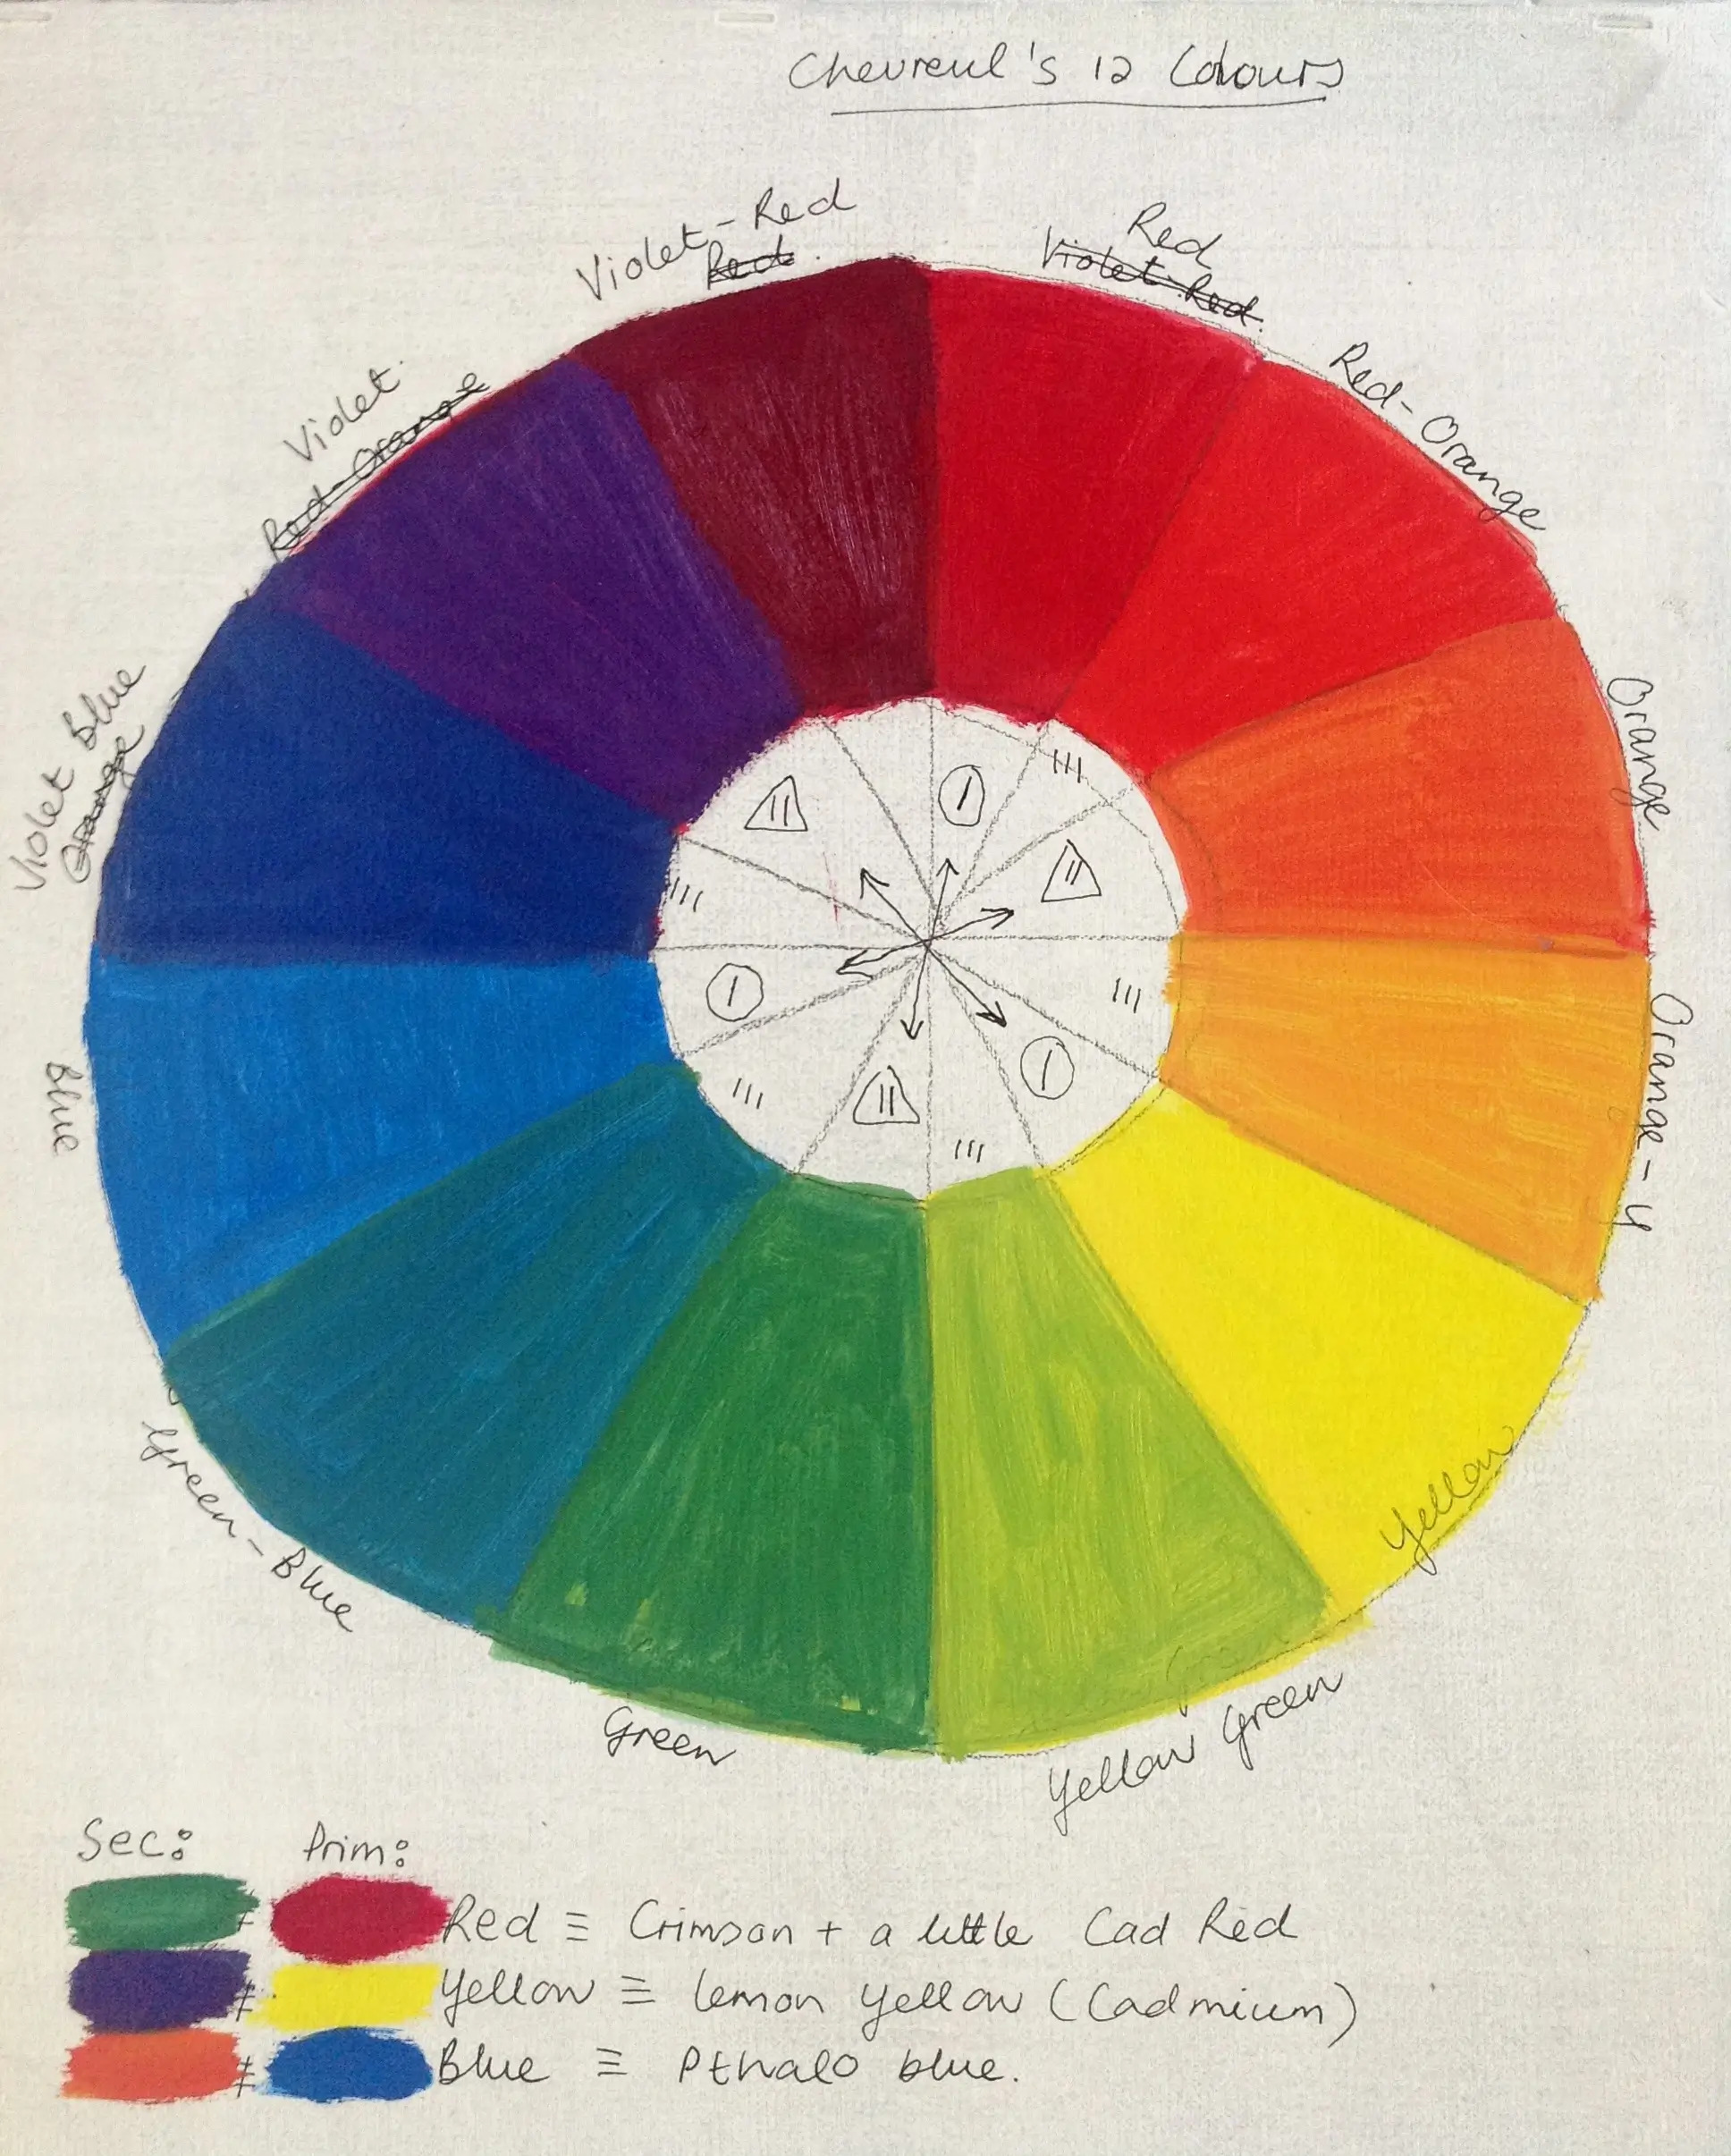 Chevreul's 12 Colours
Violet-Red
Red.
Red
Violet-Red.
Red-Orange
Orange
Orange-Y
Yellow
Yellow Green
Green
Green-Blue
Blue
Violet Blue
Orange
Violet
Red-Orange
II
I
III
II
III
I
III
II
III
I
III
Sec: Prim:
≠ Red ≡ Crimson + a little Cad Red
≠ Yellow ≡ lemon yellow (Cadmium)
≠ Blue ≡ Pthalo blue.